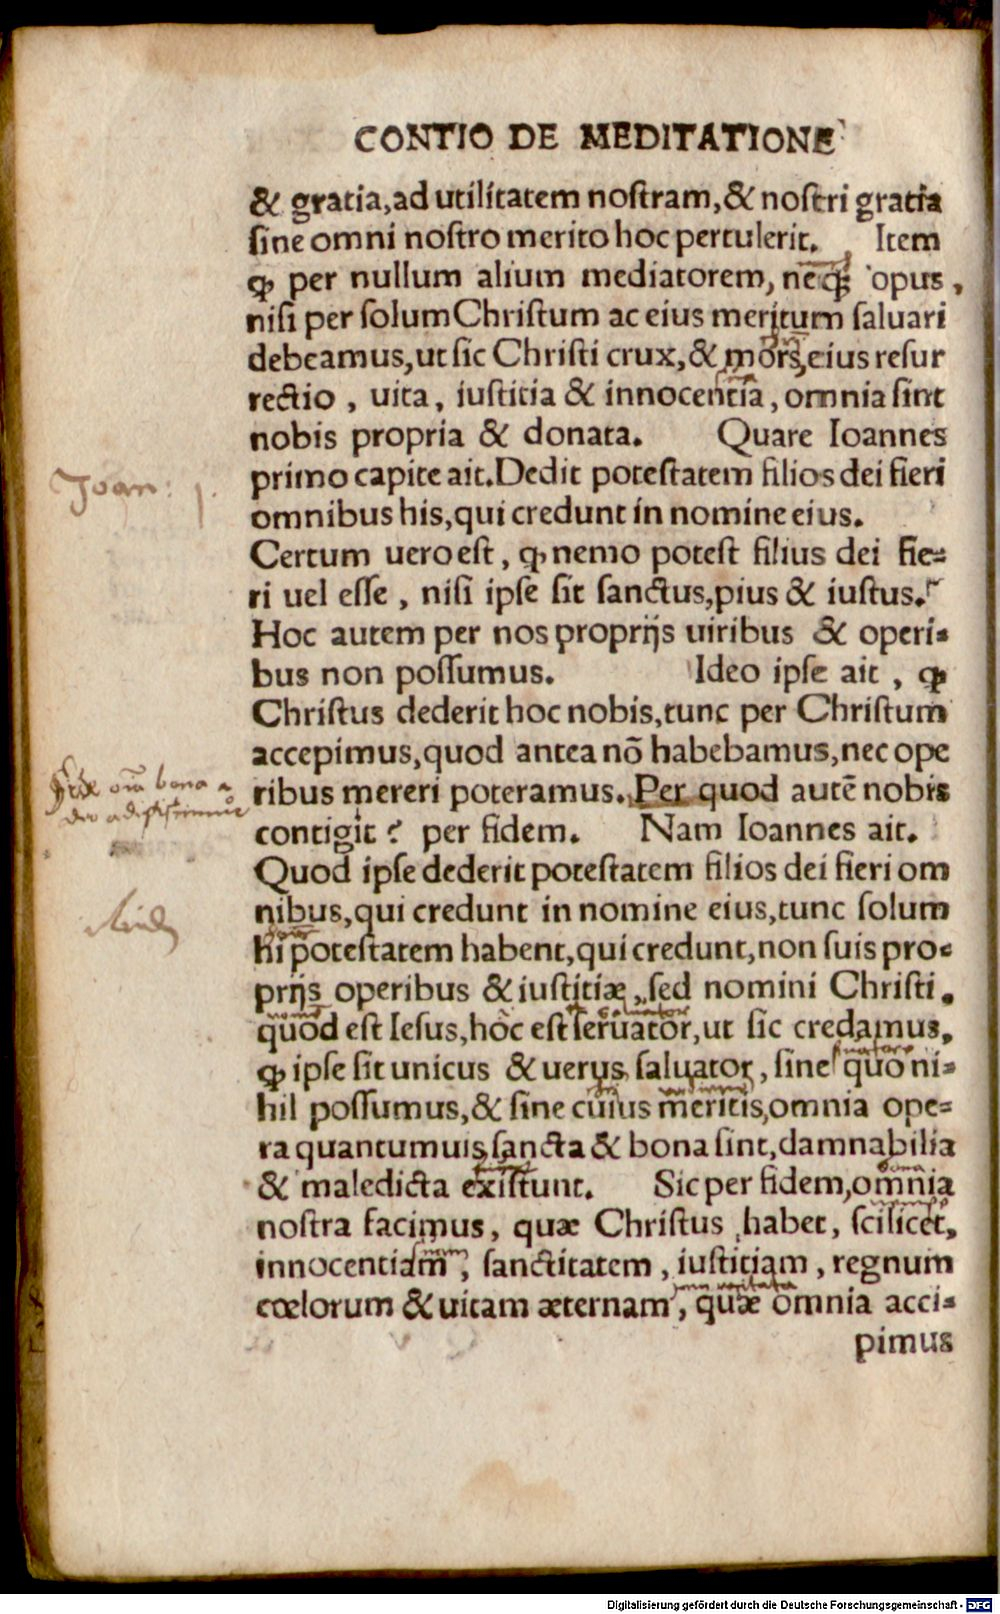 CONTIO DE MEDITATIONE
& gratia, ad utilitatem nostram, & nostri gratia
sine omni nostro merito hoc pertulerit. Item
ꝙ per nullum alium mediatorem, neqꝫ opus,
nisi per solum Christum ac eius meritum saluari
debeamus, ut sic Christi crux, & mors, eius resur
rectio, uita, iustitia & innocentia, omnia sint
nobis propria & donata. Quare Ioannes
primo capite ait. Dedit potestatem filios dei fieri
Joan: 1.
omnibus his, qui credunt in nomine eius.
Certum uero est, ꝙ nemo potest filius dei fie-
ri uel esse, nisi ipse sit sanctus, pius & iustus.
Hoc autem per nos proprijs uiribus & operi-
bus non possumus. Ideo ipse ait, ꝙ
Christus dederit hoc nobis, tunc per Christum
accepimus, quod antea nõ habebamus, nec ope
bona a
ribus mereri poteramus. Per quod autẽ nobis
deo
contigit? per fidem. Nam Ioannes ait.
Quod ipse dederit potestatem filios dei fieri om
nibus, qui credunt in nomine eius, tunc solum
hi potestatem habent, qui credunt, non suis pro-
prijs operibus & iustitiæ, sed nomini Christi.
quod est Iesus, hoc est seruator, ut sic credamus,
ꝙ ipse sit unicus & uerus saluator, sine quo ni-
hil possumus, & sine cuius meritis, omnia ope-
ra quantumuis sancta & bona sint, damnabilia
& maledicta existunt. Sic per fidem, omnia
nostra facimus, quæ Christus habet, scilicet,
innocentiam, sanctitatem, iustitiam, regnum
cœlorum & uitam æternam, quæ omnia acci-
pimus
Digitalisierung gefördert durch die Deutsche Forschungsgemeinschaft - DFG